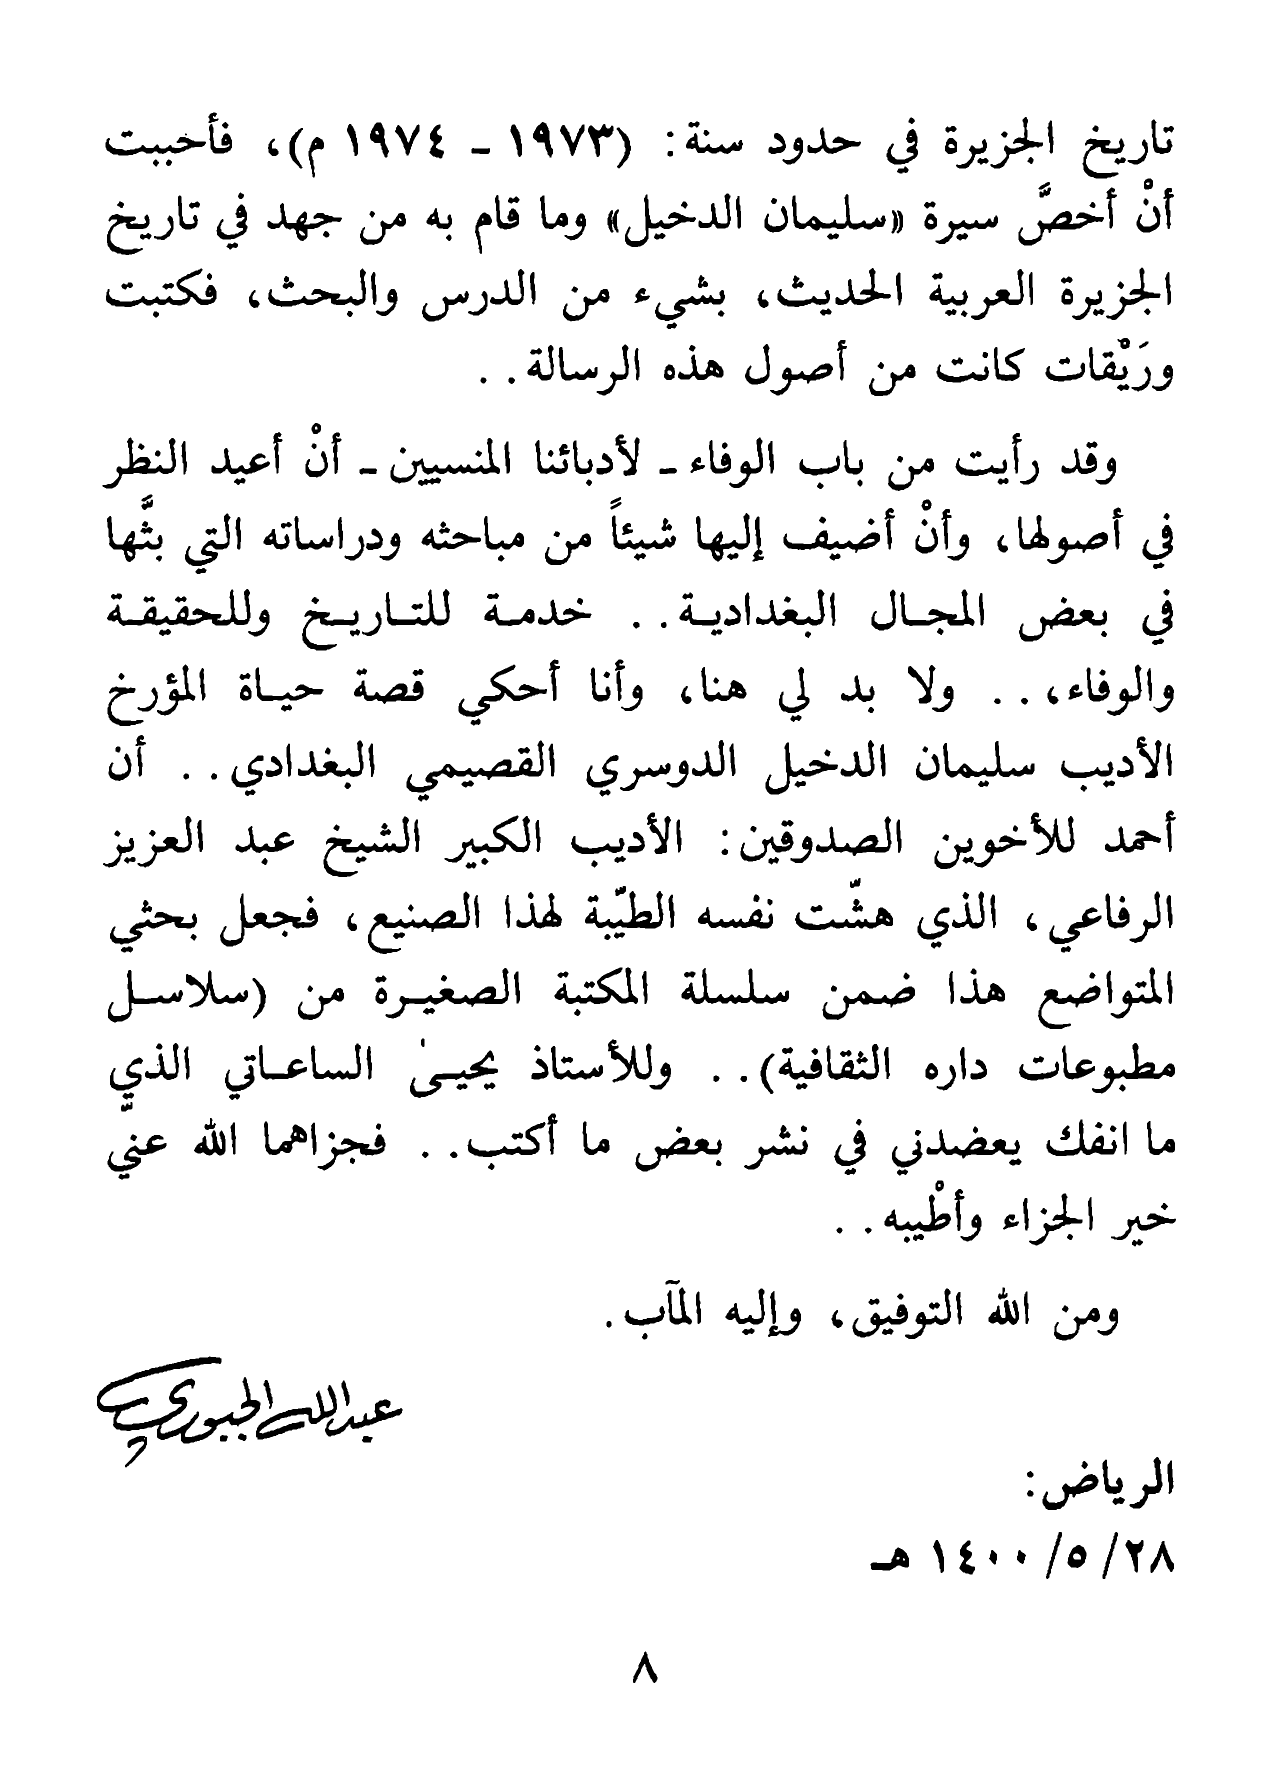 تاريخ الجزيرة في حدود سنة: (١٩٧٣ - ١٩٧٤ م)، فأحببت
أنْ أخصَّ سيرة «سليمان الدخيل» وما قام به من جهد في تاريخ
الجزيرة العربية الحديث، بشيء من الدرس والبحث، فكتبت
ورَيْقات كانت من أصول هذه الرسالة..
وقد رأيت من باب الوفاء - لأدبائنا المنسيين - أنْ أعيد النظر
في أصولها، وأنْ أضيف إليها شيئاً من مباحثه ودراساته التي بثَّها
في بعض المجال البغدادية.. خدمة للتاريخ وللحقيقة
والوفاء،.. ولا بد لي هنا، وأنا أحكي قصة حياة المؤرخ
الأديب سليمان الدخيل الدوسري القصيمي البغدادي.. أن
أحمد للأخوين الصدوقين: الأديب الكبير الشيخ عبد العزيز
الرفاعي، الذي هشّت نفسه الطيّبة لهذا الصنيع، فجعل بحثي
المتواضع هذا ضمن سلسلة المكتبة الصغيرة من (سلاسل
مطبوعات داره الثقافية).. وللأستاذ يحيىٰ الساعاتي الذي
ما انفك يعضدني في نشر بعض ما أكتب.. فجزاهما الله عنّي
خير الجزاء وأطْيبه..
ومن الله التوفيق، وإليه المآب.
عبدالله الجبوري
الرياض:
٢٨/ ٥/ ١٤٠٠ هـ
٨